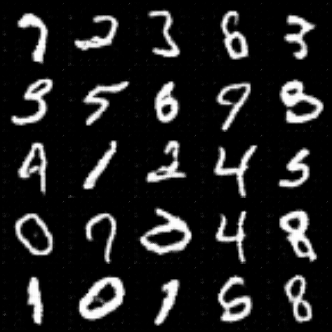 7 2 3 8 3
9 5 6 9 8
4 1 2 4 5
0 7 0 4 8
1 0 1 6 8